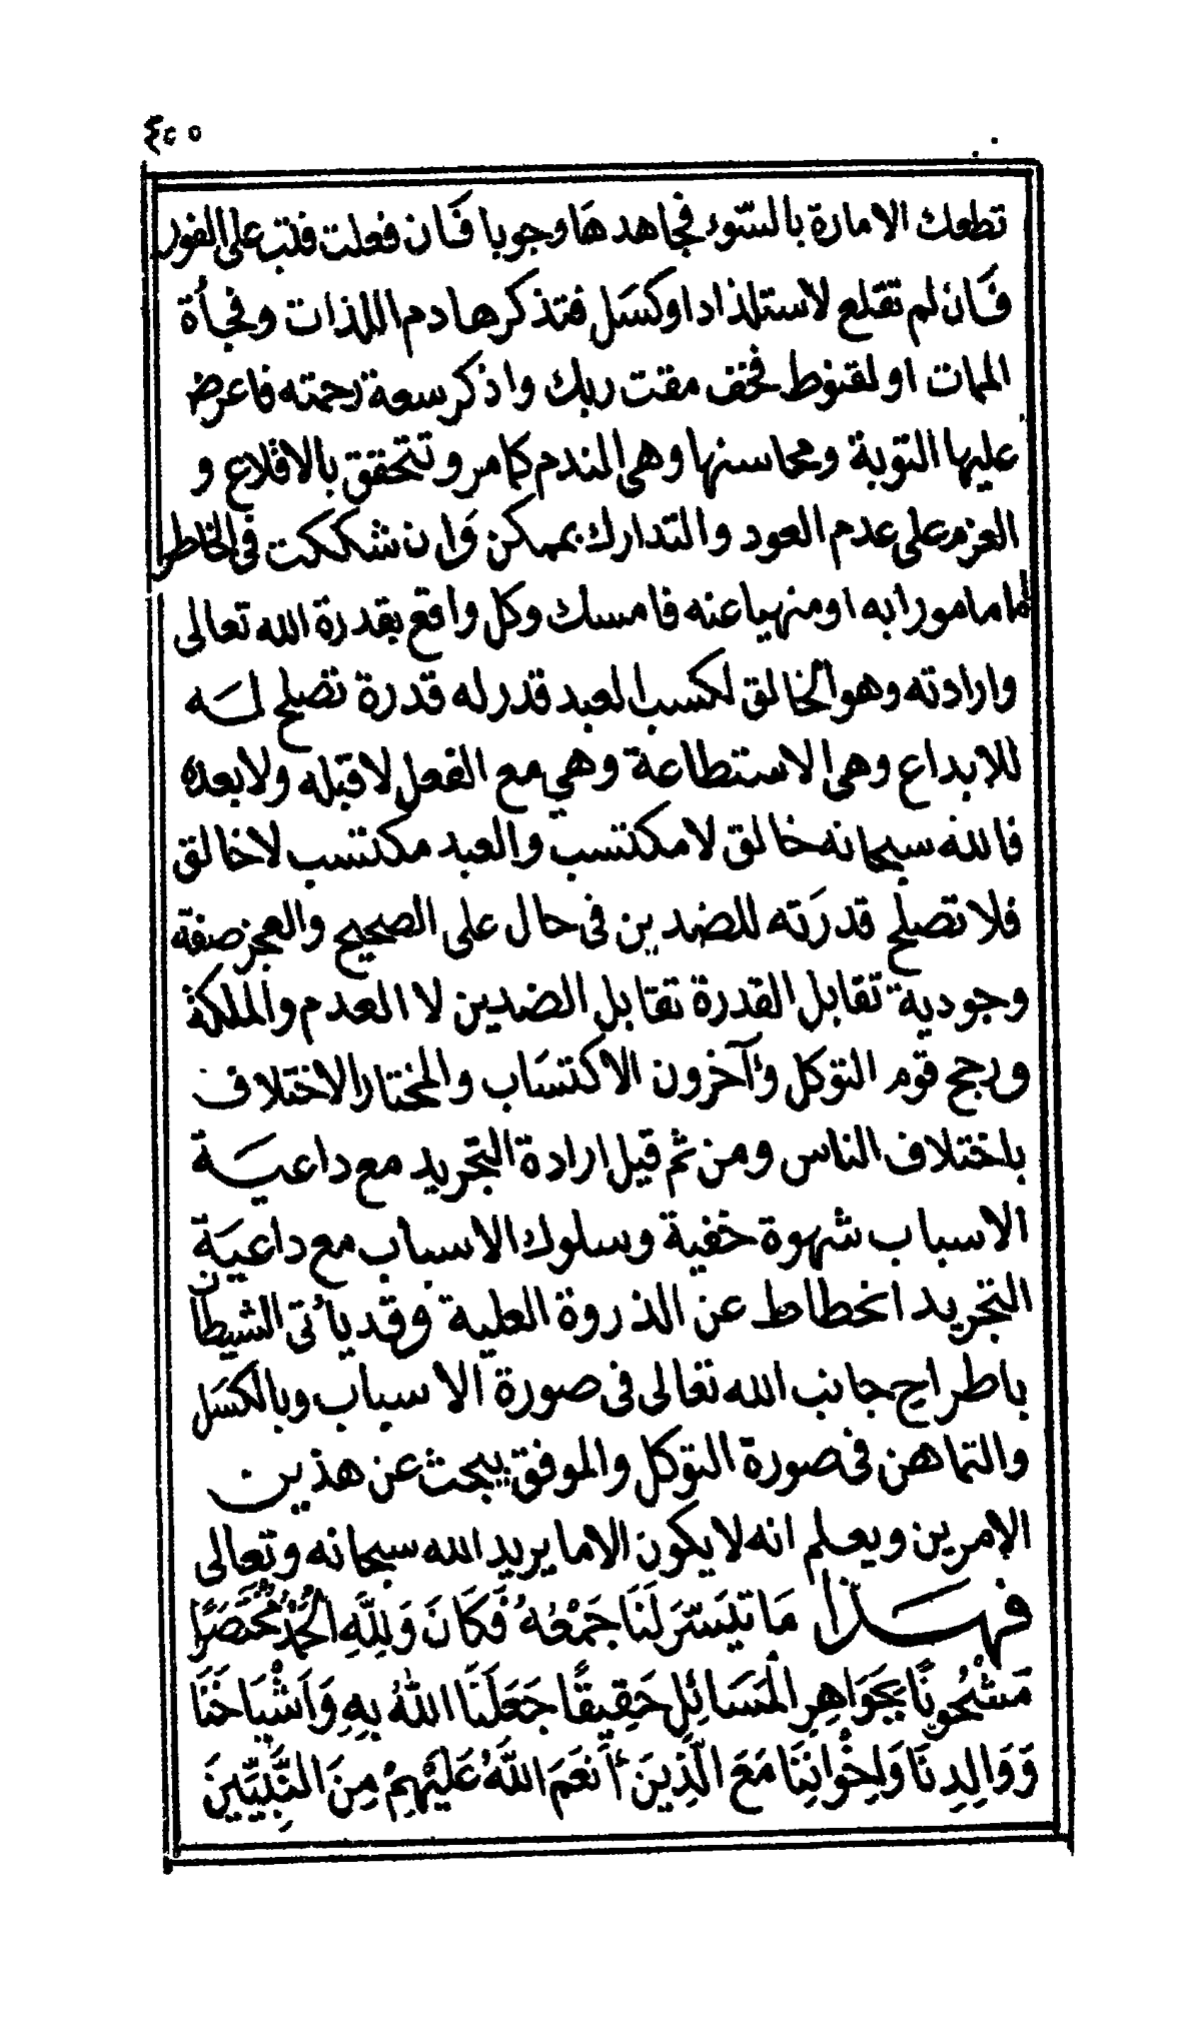 ٤٥٥
تطعك الامارة بالسّوء فجاهدهَا وجوبا فَان فعلت فتب على الفور
فَان لم تقلع لاستلذاذ اوكسَل فتذكر هادم اللذات وفجأة
الممات او لقنوط فخف مقت ربك واذكر سعة رحمته فاعرض
عليها التوبة ومحاسنها وهى الندم كما مر وتتحقق بالاقلاع و
العزم على عدم العود والتدارك بممكن وَان شككت فى الخاطر
أمامورا به اومنهيا عنه فامسك وكل واقع بقدرة الله تعالى
وارادته وهو الخالق لكسب العبد قدر له قدرة تصلح لـه
للإبداع وهى الاستطاعة وهي مع الفعل لا قبله ولا بعده
فالله سبحانه خالق لا مكتسب والعبد مكتسب لا خالق
فلا تصلح قدرَته للضدين فى حال على الصحيح والعجز صفة
وجودية تقابل القدرة تقابل الضدين لا العدم والملكة
ورجح قوم التوكل وآخرون الاكتسَاب والمختار الاختلاف
باختلاف الناس ومن ثم قيل ارادة التجريد مع داعيـة
الاسباب شهوة خفية وسلوك الاسباب مع داعيَة
التجريد انحطاط عن الذروة العلية وقد يأتى الشيطان
باطراح جانب الله تعالى فى صورة الاسباب وبالكسَل
والتماهن فى صورة التوكل والموفق يبحث عن هذين
الإمرين ويعلم انه لا يكون الاما يريد الله سبحانه وتعالى
فهـذا مَا تيَسّرَ لَنَا جَمْعُهُ فَكَانَ وَلِلَّهِ الحَمْدُ مُخْتَصَرًا
مَشْحُونًا بِجَوَاهِرِ المَسَائِلِ حَقِيقًا جَعَلَنَا اللهُ بِهِ وَاَشْيَاخَنَا
وَوَالِدِنَا وَاِخْوَانِنَا مَعَ الَّذِينَ أَنعَمَ اللَّهُ عَلَيْهِمْ مِنَ النَّبِيِّينَ